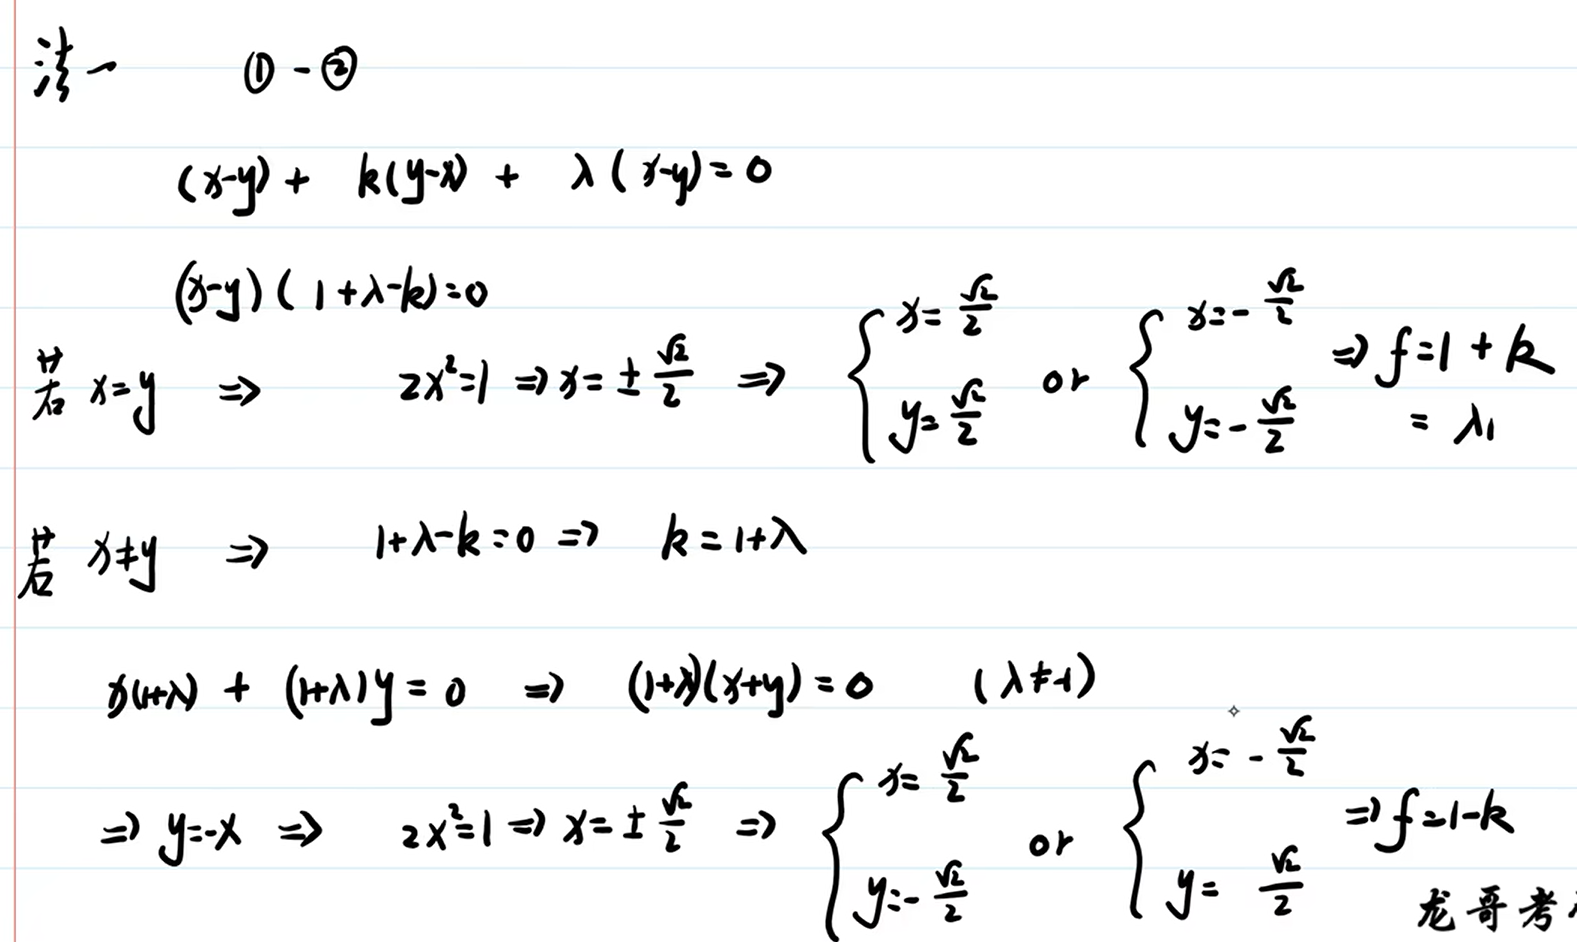 法一 ① - ②
(x-y) + k(y-x) + λ(x-y) = 0
(x-y)(1+λ-k)=0
若 x=y ⇒ 2x²=1 ⇒ x=±√2/2 ⇒ { x=√2/2 y=√2/2 or { x=-√2/2 y=-√2/2 ⇒ f=1+k
= λ₁
若 x≠y ⇒ 1+λ-k=0 ⇒ k=1+λ
x(1+λ) + (1+λ)y=0 ⇒ (1+λ)(x+y)=0 (λ≠-1)
⇒ y=-x ⇒ 2x²=1 ⇒ x=±√2/2 ⇒ { x=√2/2 y=-√2/2 or { x=-√2/2 y=√2/2 ⇒ f=1-k
龙哥考